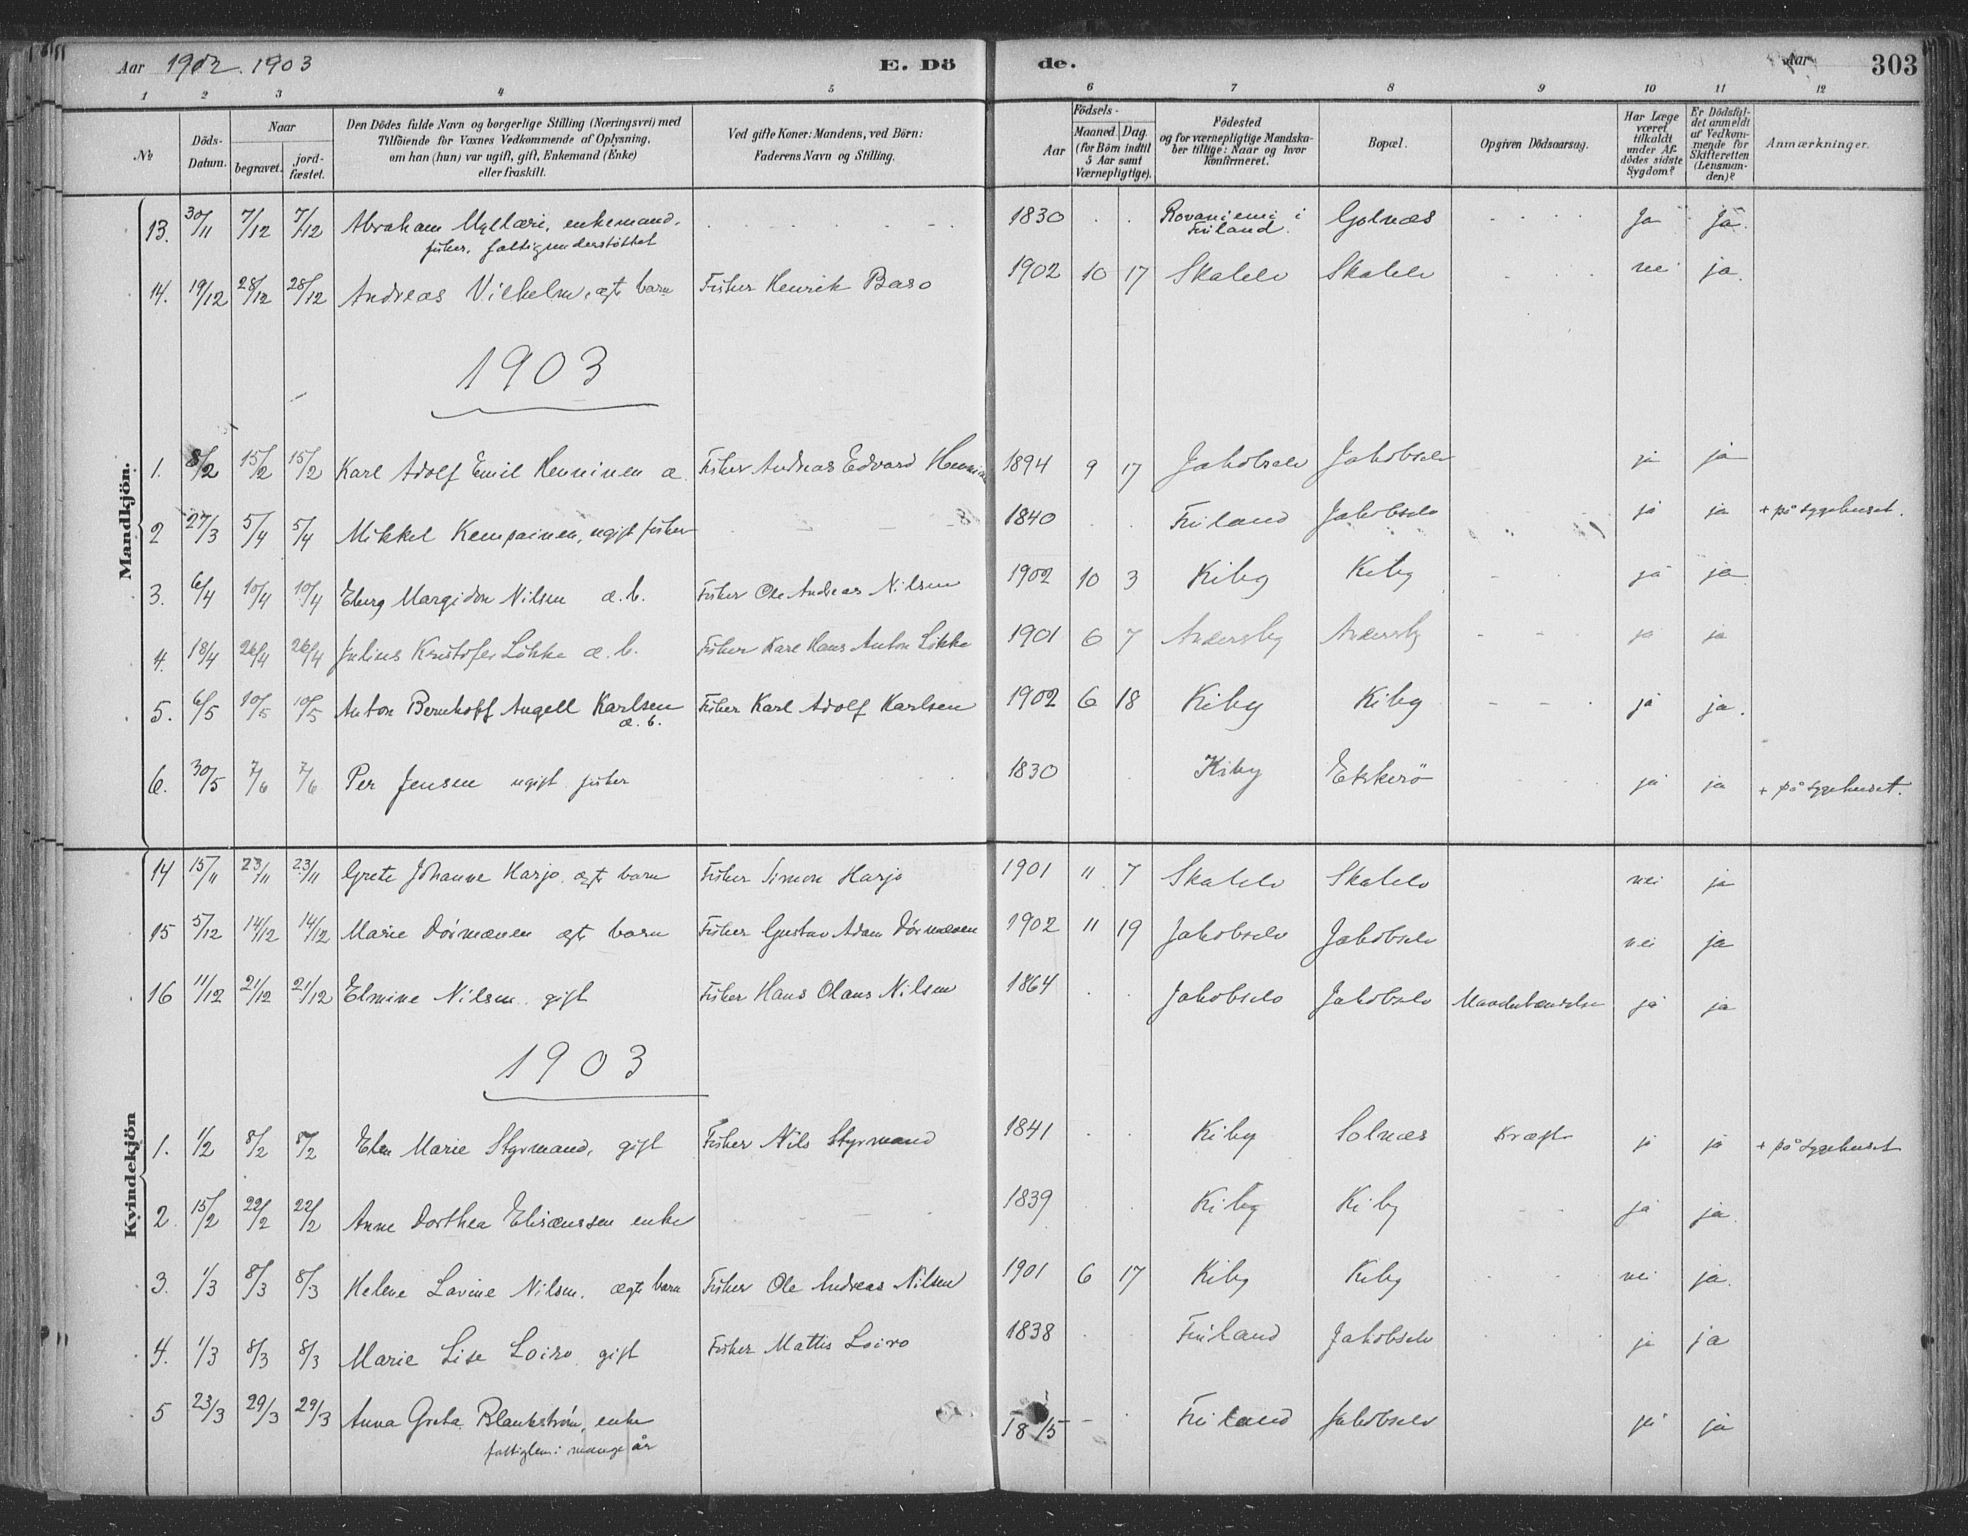 Aar 1902. 1903 E. Dö de. Aar 303
1 2 3 4 5 6 7 8 9 10 11 12
№ Döds-Datum. Naar begravet. jordfæstet. Den Dödes fulde Navn og borgerlige Stilling (Næringsvei) med Tilföiende for Voxnes Vedkommende af Oplysning, om han (hun) var ugift, gift, Enkemand (Enke) eller fraskilt. Ved gifte Koner: Mandens, ved Börn: Faderens Navn og Stilling. Födsels- Aar Maaned Dag. (for Börn indtil 5 Aar samt Værnepligtige). Födested og for værnepligtige Mandskaber tillige: Naar og hvor konfirmeret. Bopæl. Opgiven Dödsaarsag. Har Læge været tilkaldt under Afdödes sidste Sygdom? Er Dödsfaldet anmeldt af Vedkommende for Skifteretten (Lensmanden)? Anmærkninger.
Mandkjön.
13. 30/11 7/12 7/12 Abraham Myllæri, enkemand, 1830 Rovaniemi i Golnæs Ja Ja.
fisker, fattigunderstøttet Finland.
14. 19/12 28/12 28/12 Andreas Vilhelm, ægte barn Fisker Henrik Baso 1902 10 17 Skalelv Skalelv nei ja.
1903
1. 8/2 15/2 15/2 Karl Adolf Emil Henninen æ. Fisker Andreas Edvard 1894 9 17 Jakobselv Jakobselv ja ja
2 27/3 5/4 5/4 Mikkel Kempainen, ugift fisker 1840 Finland Jakobselv ja ja + på sygehuset.
3. 6/4 10/4 10/4 Margidon Nilsen æ. b. Fisker Ole Andreas Nilsen 1902 10 3 Kiby Kiby ja ja
4. 18/4 26/4 26/4 Julius Kristofer Løkke æ. b. Fisker Karl Hans Anton Løkke 1901 6 7 Andersby Andersby ja ja
5. 6/5 10/5 10/5 Anton Bernhoff Angell Karlsen Fisker Karl Adolf Karlsen 1902 6 18 Kiby Kiby ja ja.
æ. b.
6. 30/5 7/6 7/6 Per Jensen ugift fisker 1830 Kiby Ekkerö ja ja + på sygehuset.
Kvindekjön
14 15/11 23/11 23/11 Grete Johanne Harjo ægte barn Fisker Simon Harjo 1901 11 7 Skalelv Skalelv nei ja
15 5/12 14/12 14/12 Marie Dörmænen ægte barn Fisker Gustav Adam Dörmænen 1902 11 19 Jakobselv Jakobselv nei ja
16 11/12 21/12 21/12 Elmine Nilsen gift Fisker Hans Olaus Nilsen 1864 Jakobselv Jakobselv ja ja
1903
1. 1/2 8/2 8/2 Elen Marie Styrmand, gift Fisker Nils Styrmand 1841 Kiby Golnæs Kræft ja ja + på sygehuset
2. 15/2 22/2 22/2 Anne Dorthea Elisæussen enke 1839 Kiby Kiby ja ja
3. 1/3 8/3 8/3 Helene Lavine Nilsen, ægte barn Fisker Ole Andreas Nilsen 1901 6 17 Kiby Kiby nei ja.
4. 1/3 8/3 8/3 Marie Lise Loiro gift Fisker Mattis Loiro 1838 Finland Jakobselv ja ja
5 23/3 29/3 29/3 Anna Greta Blankström, enke 1815 Finland Jakobselv ja ja
fattiglem i mange år